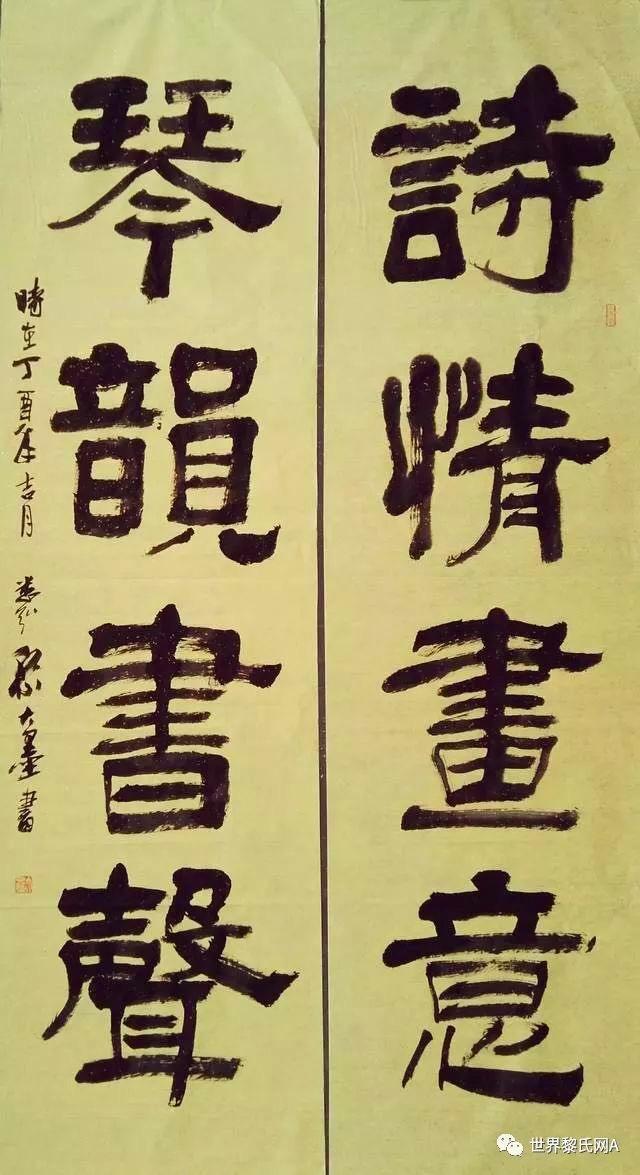 詩情畫意
琴韻書聲
時在丁酉年吉月
大墨書
世界黎氏网A